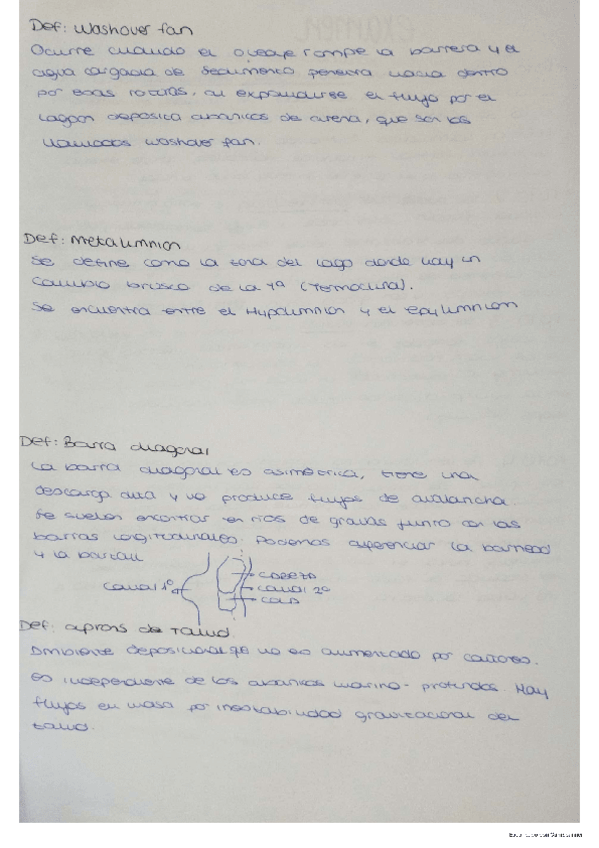 Def: Washover fan
Ocurre cuando el oleaje rompe la barrera y el
agua cargada de sedimento penetra hacia dentro
por esas roturas, al expandirse el flujo por el
lagoon deposita abanicos de arena, que son los
llamados washover fan.
Def: Metalimnion
Se define como la zona del lago donde hay un
cambio brusco de la Tª (Termoclina).
Se encuentra entre el Hypolimnion y el Epylimnion
Def: Barra diagonal
La barra diagonal es asimétrica, tiene una
descarga alta y no produce flujos de avalancha.
Se suelen encontrar en ríos de gravas junto con las
barras longitudinales. Podemos diferenciar la barhead
y la bartail
canal 1º
CABEZA
canal 2º
COLA
Def: aprons de Talud.
Ambiente deposicional qe no es alimentado por cañones.
es independiente de los abanicos marino-profundos. Hay
flujos en masa por inestabilidad gravitacional del
talud.